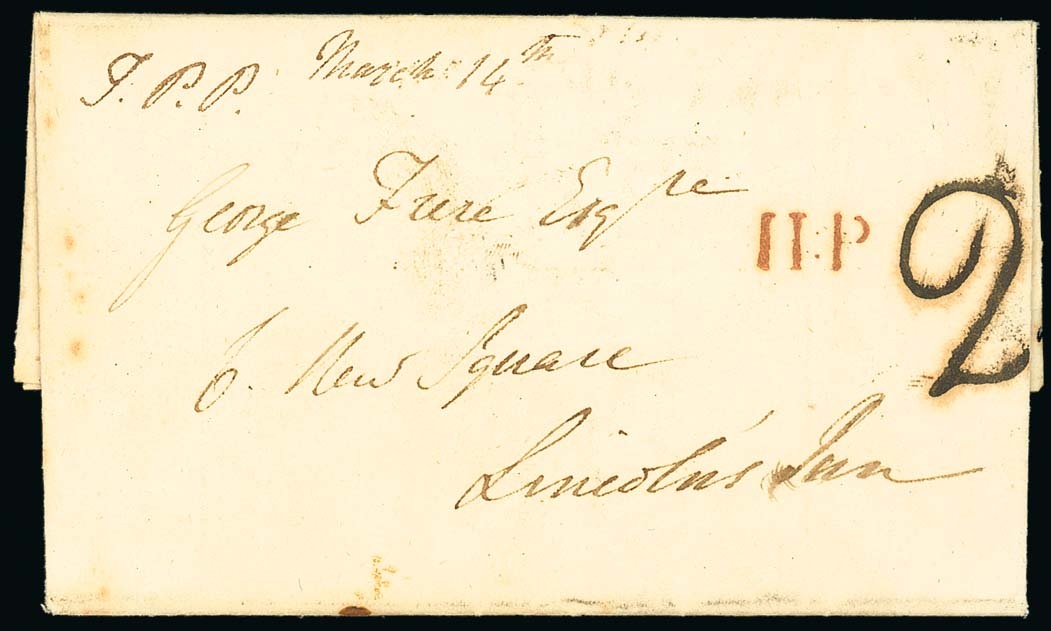 T. P. P. March 14th
George Frere Esqre
6. New Square
Lincoln's Inn
II.P
2